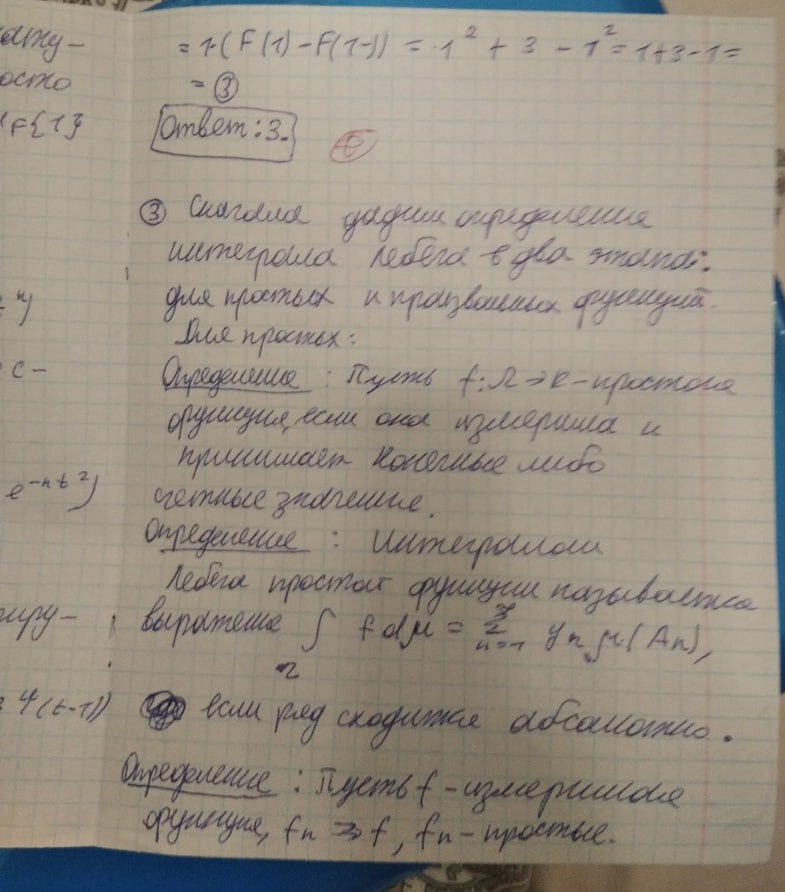 ату-
= 1·(F(1) - F(1-)) = 1² + 3 - 1² = 1+3-1=
осто
= ③
F{1}
Ответ: 3.
③ Сначала дадим определение
интеграла Лебега в два этапа:
для простых и произвольных функций.
Для простых:
Определение: Пусть f: Ω → R - простая
с-
функция, если она измерима и
принимает конечные либо
счетные значения.
e^{-nt²})
Определение: Интегралом
Лебега простой функции называется
выражение ∫_Ω f dμ = Σ_{n=1} yₙ μ(Aₙ),
ψ(t-1))
если ряд сходится абсолютно.
Определение: Пусть f - измеримая
функция, fₙ ⇉ f, fₙ - простые.